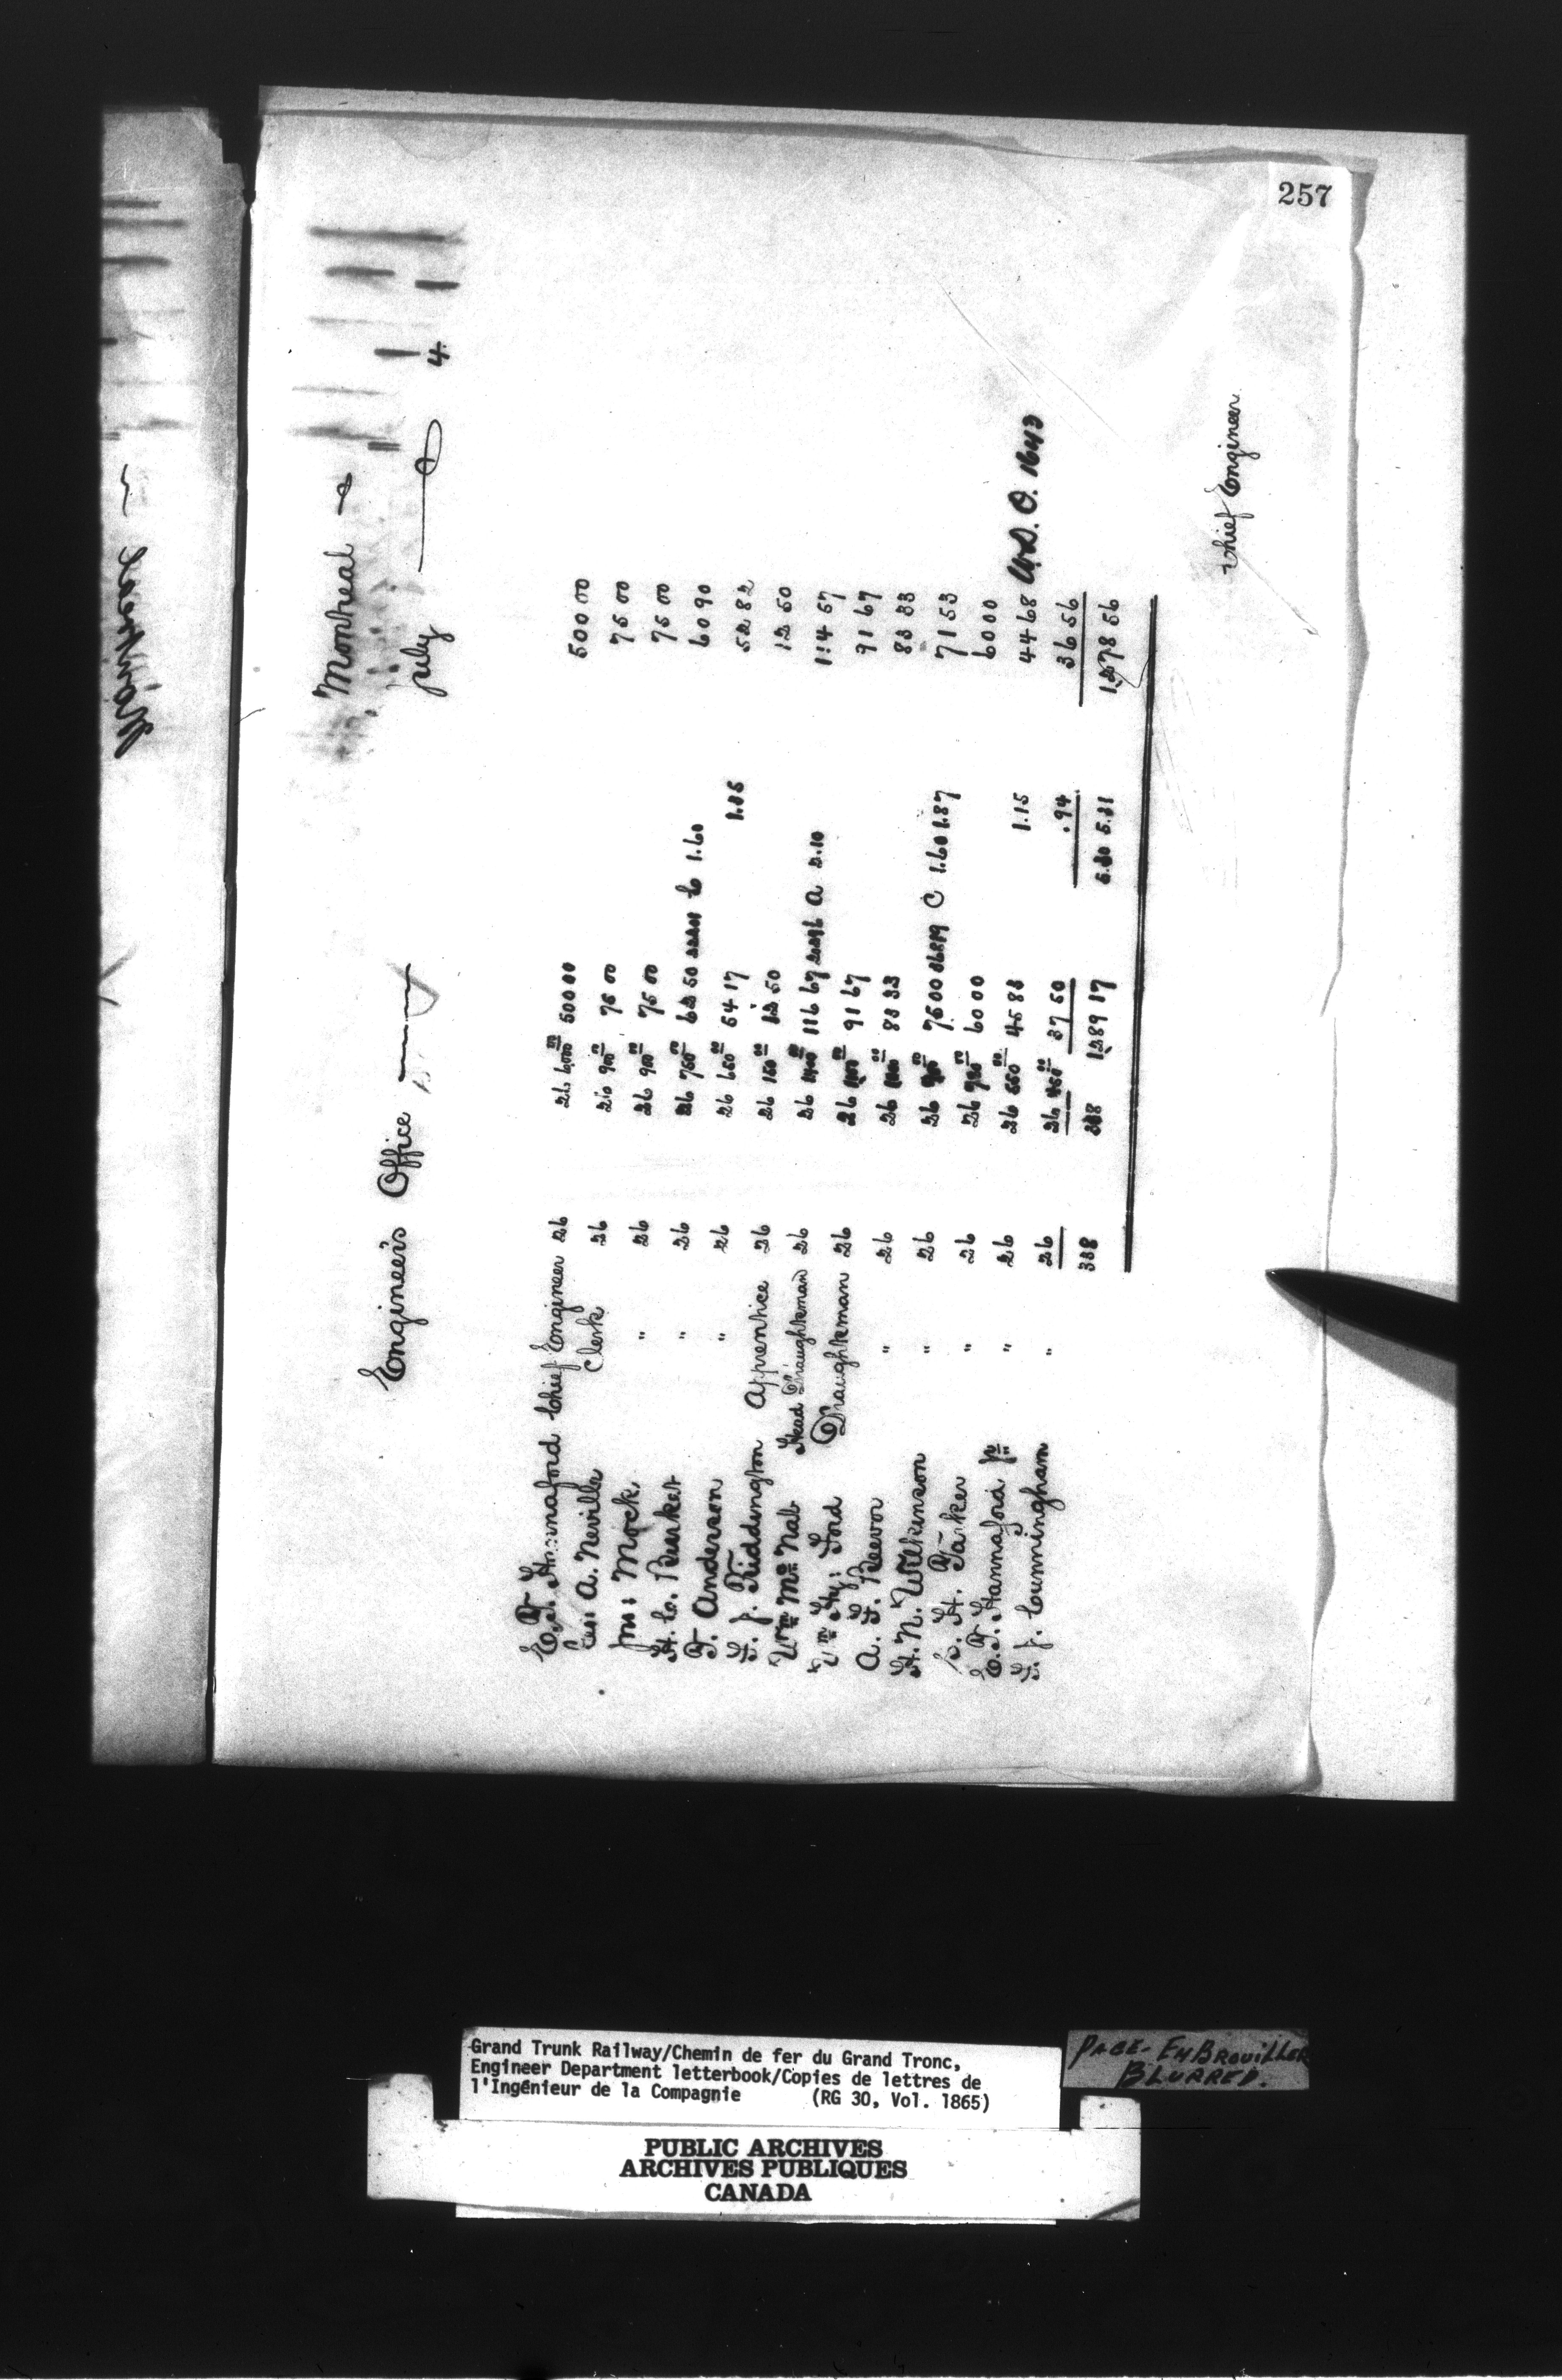 257
Montreal
Engineers Office
July 4
E. P. Hannaford Chief Engineer 26 26 6,000 00 500 00 500 00
A. Neville Clerk 26 26 900 00 75 00 75 00
Jns: Mock " 26 26 900 00 75 00 75 00
26 26 750 00 62 50 1.60 60 90
T. Anderson " 26 26 650 00 54 17 1.35 52 82
F. J. Riddington Apprentice 26 26 150 00 12 50 12 50
Wm McNab Head Draughtsman 26 26 1400 00 116 67 A 2.10 114 57
Wm Hy: Ford Draughtsman 26 26 1100 00 91 67 91 67
A. F. Reevor " 26 26 1000 00 83 33 83 33
H. N. Wilkinson " 26 26 900 00 75 00 C 1.60 1.87 71 53
H. Parker " 26 26 720 00 60 00 60 00
E. P. Hannaford Jr " 26 26 550 00 45 83 1.15 44 68 O. 1643
F. J. Cunningham " 26 26 450 00 37 50 .94 36 56
338 338 1289 17 5.30 5.31 1278 56
Chief Engineer
Montreal
Grand Trunk Railway/Chemin de fer du Grand Tronc,
Engineer Department letterbook/Copies de lettres de
l'Ingénieur de la Compagnie (RG 30, Vol. 1865)
PAGE - EMBROUILLER
BLURRED.
PUBLIC ARCHIVES
ARCHIVES PUBLIQUES
CANADA